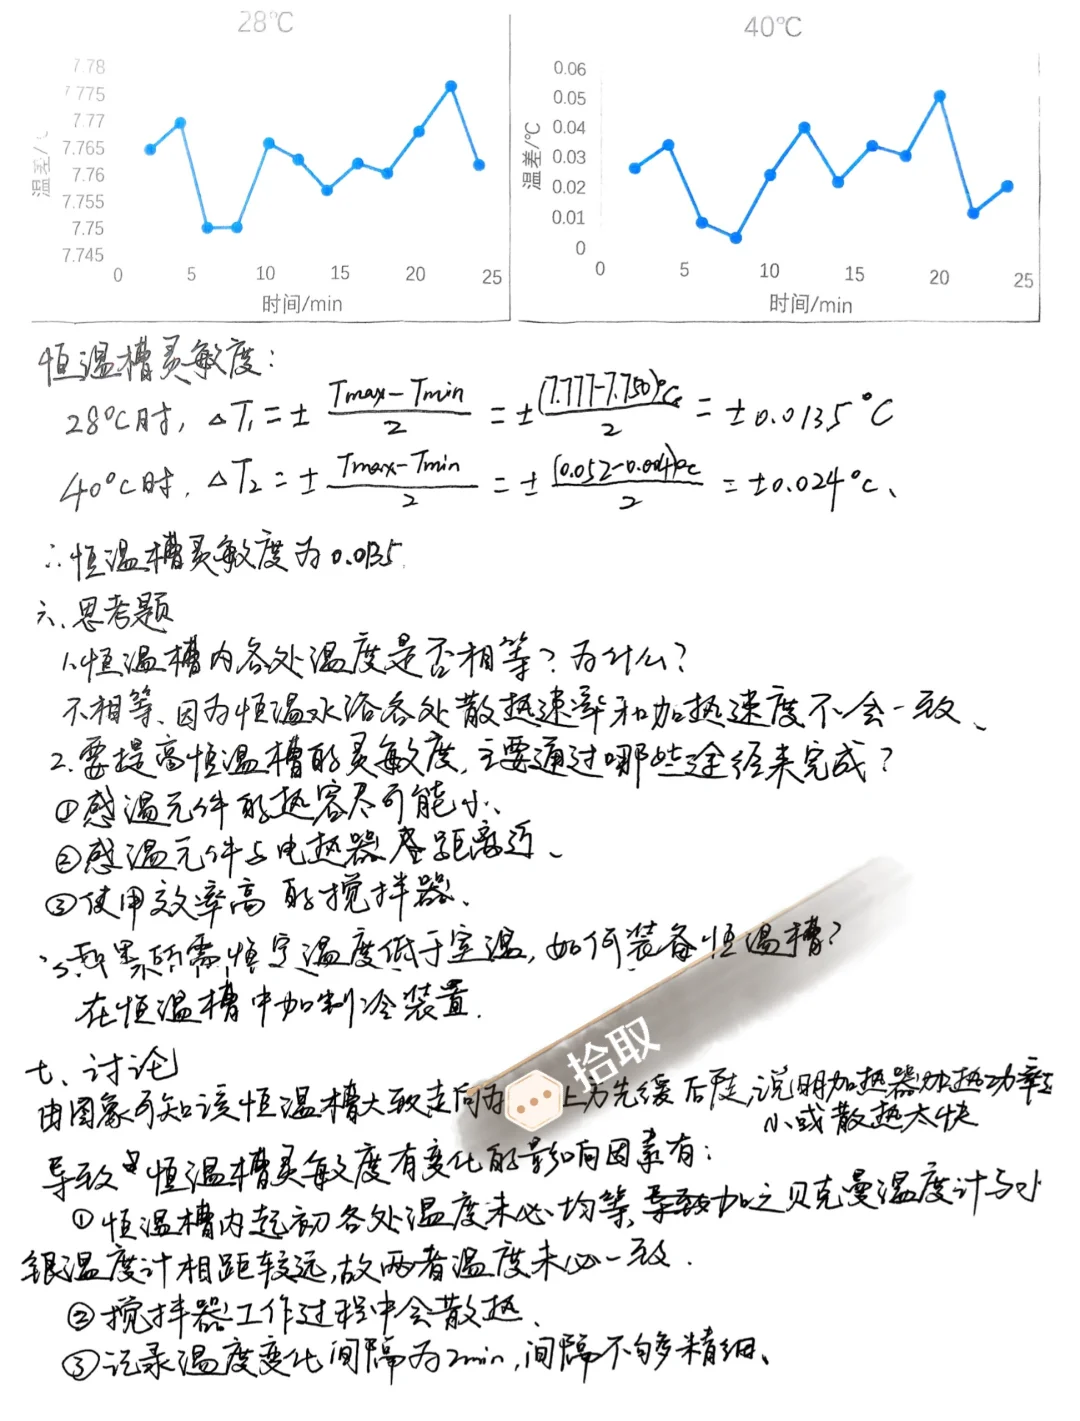 28℃
40℃
7.78
7.775
7.77
7.765
7.76
7.755
7.75
7.745
温差/℃
0 5 10 15 20 25
时间/min
0.06
0.05
0.04
0.03
0.02
0.01
0
温差/℃
0 5 10 15 20 25
时间/min
恒温槽灵敏度:
28℃时, △T₁=± (Tmax-Tmin)/2 = ± (7.777-7.750)℃/2 = ±0.0135℃
40℃时, △T₂=± (Tmax-Tmin)/2 = ± (0.052-0.004)℃/2 = ±0.024℃、
∴恒温槽灵敏度为0.0135
六、思考题
1、恒温槽内各处温度是否相等?为什么?
不相等、因为恒温水浴各处散热速率和加热速度不会一致、
2、要提高恒温槽的灵敏度,主要通过哪些途径来完成?
①感温元件的热容尽可能小、
②感温元件与电热器 距离近、
③使用效率高的搅拌器、
3、如果所需恒定温度低于室温,如何装备恒温槽?
在恒温槽中加制冷装置.
七、讨论
由图象可知该恒温槽大致走向为 上方先缓后陡,说明加热器加热功率
小或散热太快
拾取
导致 恒温槽灵敏度有变化的影响因素有:
①恒温槽内起初各处温度未必均等,导致加之贝克曼温度计与水
银温度计相距较远,故两者温度未必一致.
②搅拌器工作过程中会散热、
③记录温度变化间隔为2min,间隔不够精细、